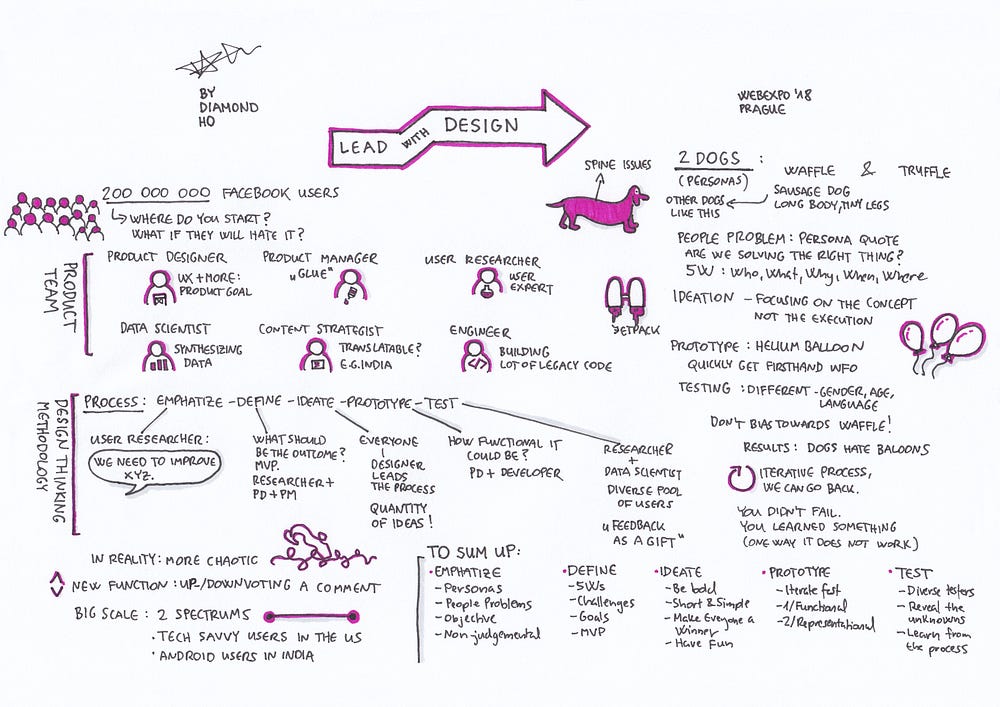 BY
DIAMOND
HO
LEAD WITH DESIGN
WEBEXPO '18
PRAGUE
200 000 000 FACEBOOK USERS
WHERE DO YOU START?
WHAT IF THEY WILL HATE IT?
PRODUCT
TEAM
PRODUCT DESIGNER
UX + MORE:
PRODUCT GOAL
PRODUCT MANAGER
„GLUE"
USER RESEARCHER
USER
EXPERT
DATA SCIENTIST
SYNTHESIZING
DATA
CONTENT STRATEGIST
TRANSLATABLE?
E.G. INDIA
ENGINEER
BUILDING
LOT OF LEGACY CODE
SPINE ISSUES
JETPACK
2 DOGS :
(PERSONAS)
WAFFLE & TRUFFLE
OTHER DOGS
LIKE THIS
SAUSAGE DOG
LONG BODY, TINY LEGS
PEOPLE PROBLEM : PERSONA QUOTE
ARE WE SOLVING THE RIGHT THING?
5W : Who, What, Why, When, Where
IDEATION - FOCUSING ON THE CONCEPT
NOT THE EXECUTION
PROTOTYPE : HELIUM BALLOON
QUICKLY GET FIRSTHAND WFO
TESTING : DIFFERENT - GENDER, AGE,
LANGUAGE
DON'T BIAS TOWARDS WAFFLE!
RESULTS : DOGS HATE BALOONS
ITERATIVE PROCESS,
WE CAN GO BACK.
YOU DIDN'T FAIL.
YOU LEARNED SOMETHING
(ONE WAY IT DOES NOT WORK)
DESIGN THINKING
METHODOLOGY
PROCESS : EMPHATIZE - DEFINE - IDEATE - PROTOTYPE - TEST
USER RESEARCHER :
WE NEED TO IMPROVE
XYZ.
WHAT SHOULD
BE THE OUTCOME?
MVP.
RESEARCHER +
PD + PM
EVERYONE
DESIGNER
LEADS
THE PROCESS
QUANTITY
OF IDEAS!
HOW FUNCTIONAL IT
COULD BE?
PD + DEVELOPER
RESEARCHER
+
DATA SCIENTIST
DIVERSE POOL
OF USERS
„FEEDBACK
AS A GIFT"
IN REALITY: MORE CHAOTIC
NEW FUNCTION : UP/DOWNVOTING A COMMENT
BIG SCALE : 2 SPECTRUMS
· TECH SAVVY USERS IN THE US
· ANDROID USERS IN INDIA
TO SUM UP:
· EMPHATIZE
- Personas
- People Problems
- Objective
- Non judgemental
· DEFINE
- 5Ws
- Challenges
- Goals
- MVP
· IDEATE
- Be bold
- Short & Simple
- Make Everyone a
Winner
- Have Fun
· PROTOTYPE
- Iterate fast
- 1/Functional
- 2/Representational
· TEST
- Diverse testers
- Reveal the
unknowns
- Learn from
the process